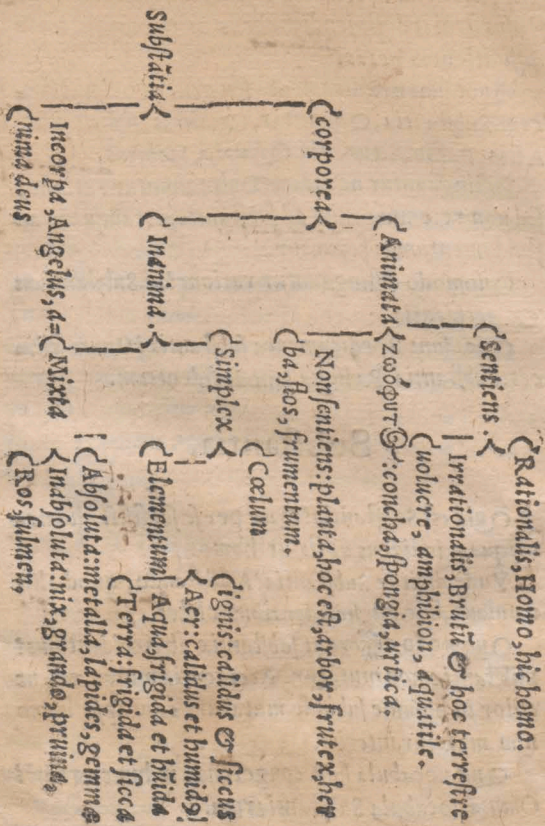 Substãtia
corporea
Incorpa, Angelus, a=
nima deus
Animata
Inanima.
Sentiens.
ζωόφυτ@: concha, spongia, urtica
Non sentiens: planta, hoc est, arbor, frutex, her
ba, flos, frumentum.
Simplex
Mixta
Rationalis, Homo, hic homo
Irrationalis Brutũ & hoc terrestre
uolucre, amphibion, aquatile.
Cœlum
Elementum
Ignis: calidus & siccus
Aer: calidus et humid9
Aqua, frigida et hũida
Terra: frigida et sicca
Absoluta: metalla, lapides, gemmæ
Inabsoluta nix, grando, pruina,
Ros, fulmen,